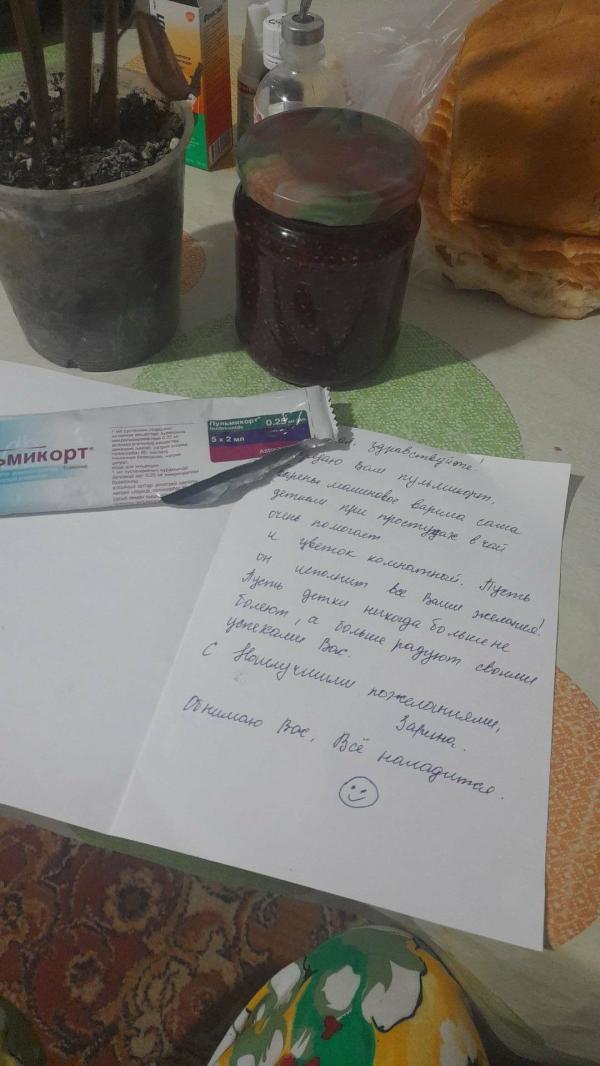 Пульмикорт®
0.25 мг/мл
budesonide
5 x 2 мл
ьмикорт®
Здравствуйте!
Вам пульмикорт,
малиновое варила сама
деткам при простудах в чай
очень помогает
и цветок комнатный. Пусть
он исполнит все Ваши желания!
Пусть детки никогда больше не
болеют, а больше радуют своими
успехами Вас.
С Наилучшими пожеланиями,
Зарина.
Обнимаю Вас, Всё наладится.